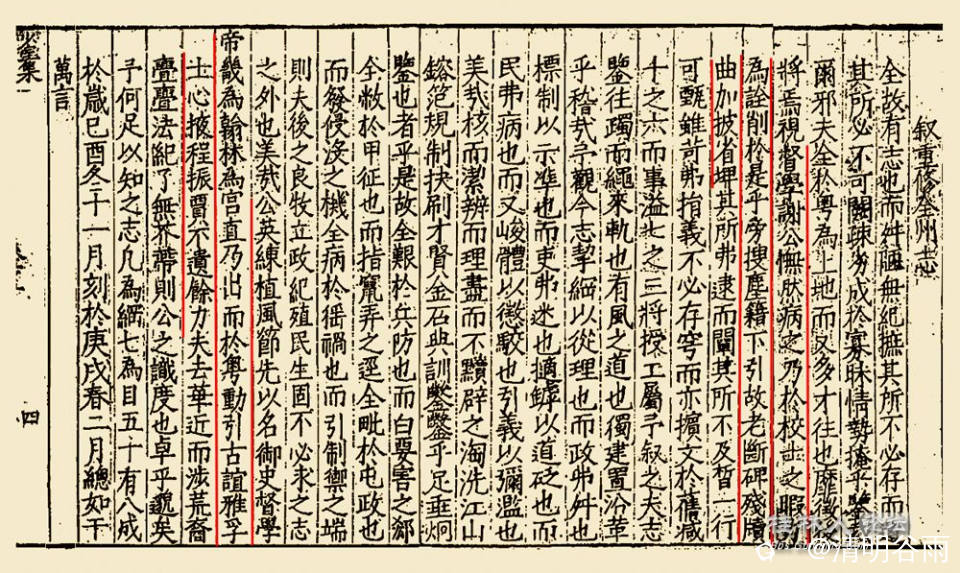 叙重修全州志
全故有志也而舛陋無紀摭其所不必存而
其所必不可闕疎労成於寡昧情勢掩乎鑒
爾邪夫全於粤為上地而又多才往也靡後
將焉視督學謝公憮然病之乃於校士之暇
為詮削於是乎旁搜塵籍下引故老斷碑殘牘
曲加披省埤其所弗逮而闡其所不及晳一行
可甄雖苛弗指義不必存穹而亦擯文於舊减
十之六而事溢北之三將授工屬予叙之夫志
鑒往躅而繩來軌也有風之道也獨建置汾革
乎稽㢤予觀今志挈綱以從理也而政弗舛也
標制以示準也而吏弗迷也摘罅以道砭也而
民弗病也而又峻體以徵駮也引義以彌濫也
美㢤核而潔辨而理盡而不黷辟之淘洗江山
鎔笵規制抉刷才賢金石典訓鑿鑿乎足垂炯
鑒也者乎是故全艱於兵防也而白要害之郄
全敝於甲征也而指竄弄之逕全毗於屯政也
而發侵沒之機全病於徭禍也而引制禦之端
則夫後之良牧立政紀殖民生固不必求之志
之外也美㢤公英練植風節先以名御史督學
帝畿為翰林為宫直乃出而於粤動引古誼雅孚
士心掖程振賈不遺餘力夫去華近而涉荒裔
亹亹法紀了無芥蔕則公之識度也卓乎邈矣
予何足以知之志凡為綱七為目五十有八成
於歳巳酉冬十一月刻於庚戌春二月總如干
萬言
四
桂林人论坛
@清明谷雨